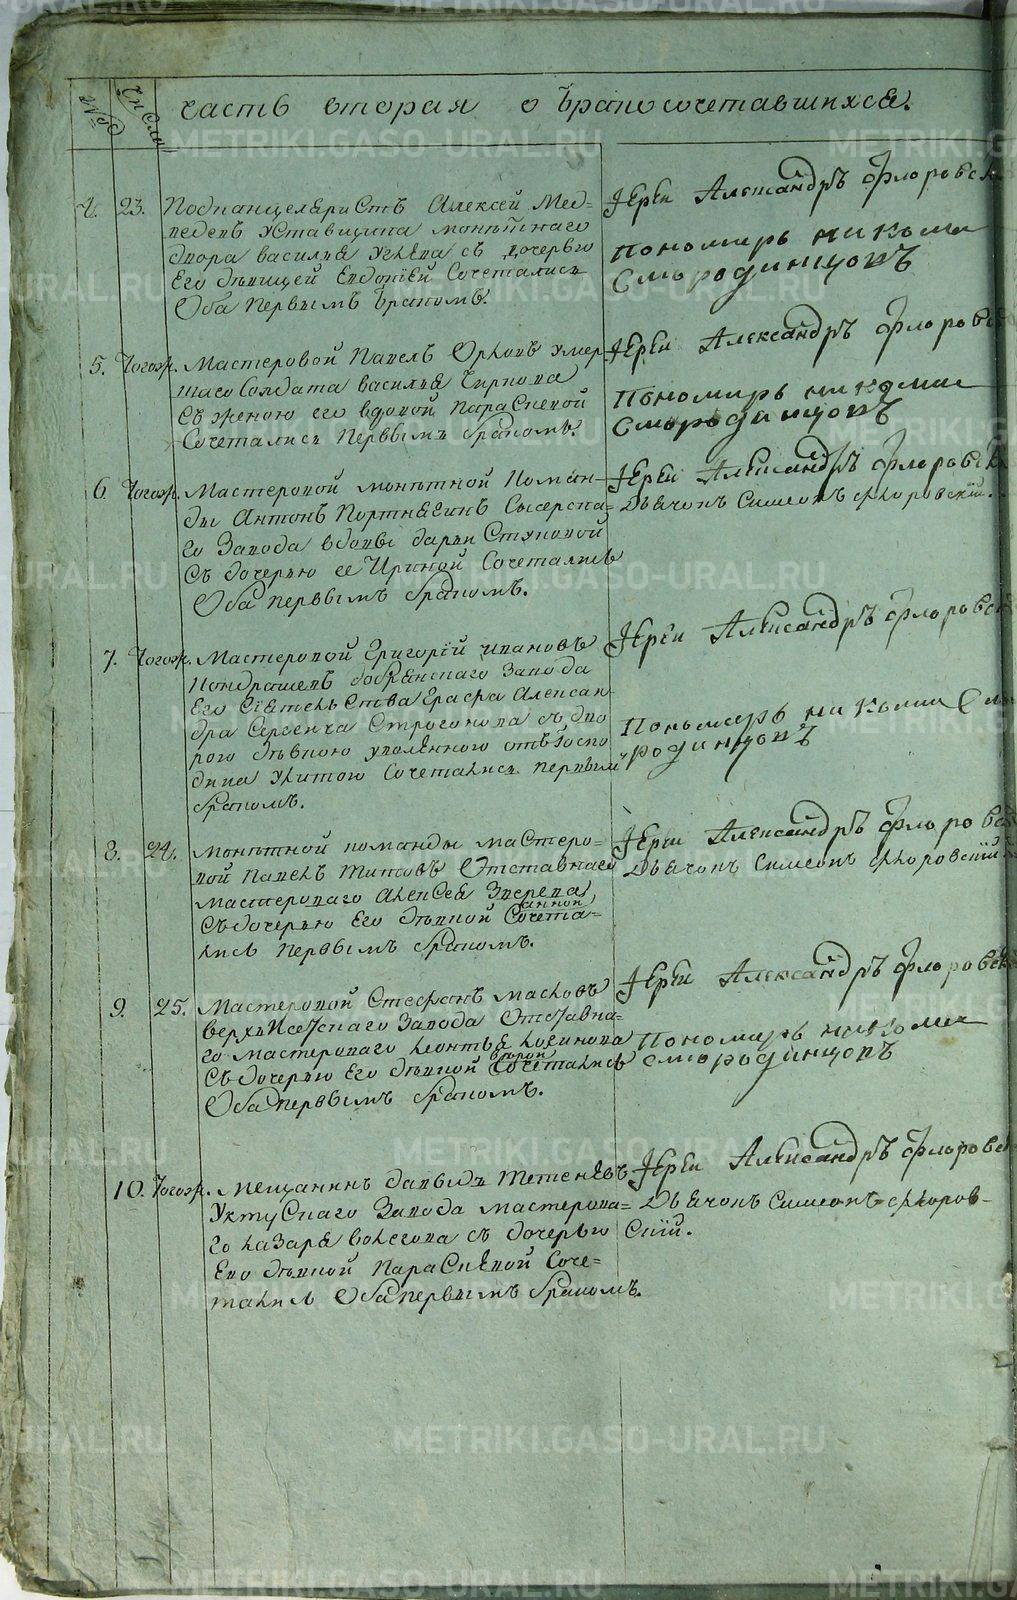 №
Число
часть вторая о бракосочетавшихся.
4. 23. Подканцеляристъ Алексей Мед-
ведевъ уставщика монѣтнаго
двора василья Ускова съ дочерью
Его дѣвицей Евдокіей Сочетались
Оба Первымъ бракомъ.
Іерей Александръ Флоровск
пономарь никола
Смородинцовъ
5. Тогож. Мастеровой Павелъ Орловъ умер
шаго Солдата василья Чиркова
съ женою его вдовой параскевой
Сочетались Первымъ бракомъ.
Іерей Александръ Флоровск
пономарь николай
Смородинцовъ
6. Тогож. Мастеровой монѣтной коман-
ды Антонъ Портнягинъ Сысерска-
го Завода вдовы дарьи Ступовой
съ дочерью ее Ириной Сочетались
Оба первымъ бракомъ.
Іерей Александръ Флоровск
Дьячокъ Симеонъ Флоровскій.
7. Тогож. Мастеровой Григорій ивановъ
Кондрашевъ добрянскаго Завода
Его Сіятельства Графа Алексан-
дра Сергеича Строгонова съ дво
рою дѣвкою уволенного отъ Госпо
дина Улитою Сочетались первымъ
бракомъ.
Іерей Александръ Флоровск
Пономарь николай Смо
родинцовъ
8. 24. монѣтной команды мастеро-
вой Павелъ Титовъ Отставнаго
мастероваго Алексея Зверева
съ дочерью Его дѣвкой анной Сочета-
лись первымъ бракомъ.
Іерей Александръ Флоровск
Дьячокъ Симеонъ Флоровскій
9. 25. Мастеровой Стефанъ масловъ
верхъ Исетскаго Завода Отставна-
го мастероваго леонтья логинова
съ дочерью Его дѣвкой второй Сочетались
Оба первымъ бракомъ.
Іерей Александръ Флоровск
пономарь николай
Смородинцовъ
10. Тогож. мещанинъ давыдъ Тетеневъ
Уктускаго Завода мастерова-
го лазаря волегова съ дочерью
Ево дѣвкой Параскевой Соче-
тались Оба первымъ бракомъ.
Іерей Александръ Флоровск
Дьячокъ Симеонъ Флоров-
скій.
METRIKI.GASO-URAL.RU